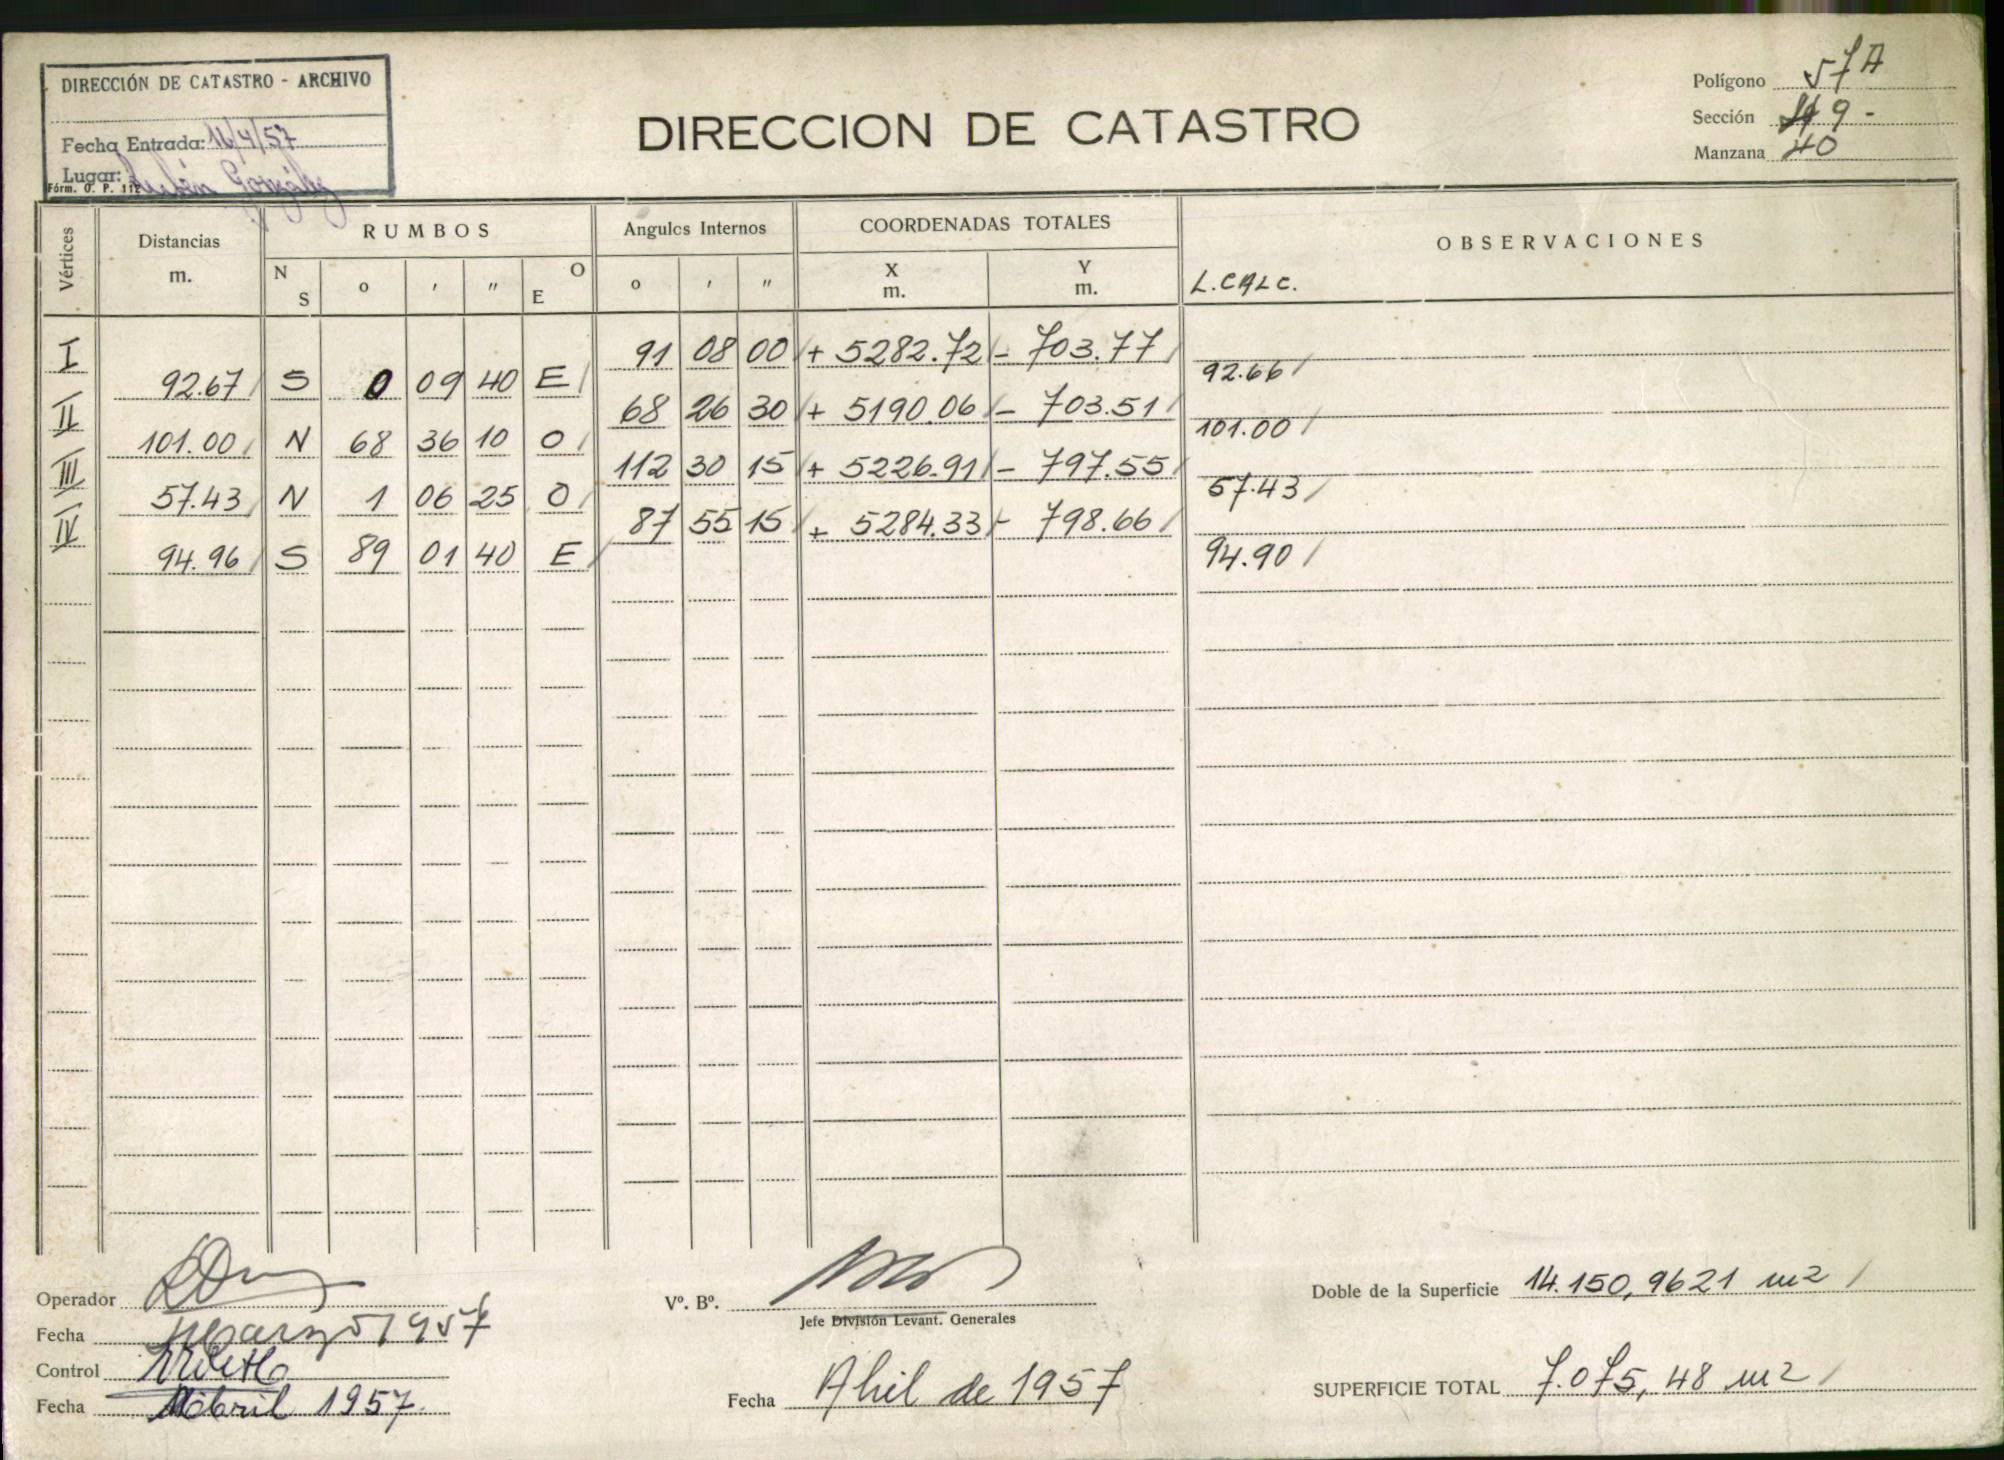 DIRECCIÓN DE CATASTRO - ARCHIVO
Fecha Entrada: 16/4/57
Lugar: Rubén González
Fórm. O. P. 112
DIRECCION DE CATASTRO
Polígono 57A
Sección 9 -
Manzana 40
Vértices
Distancias
m.
RUMBOS
N S o ' " O E
Angulos Internos
o ' "
COORDENADAS TOTALES
X
m.
Y
m.
OBSERVACIONES
L. CALC.
I 91 08 00 + 5282.72 - 703.77
92.67 S 0 09 40 E 92.66
II 68 26 30 + 5190.06 - 703.51
101.00 N 68 36 10 O 101.00
III 112 30 15 + 5226.91 - 797.55
57.43 N 1 06 25 O 57.43
IV 87 55 15 + 5284.33 - 798.66
94.96 S 89 01 40 E 94.90
Operador
Fecha Marzo 1957
Control
Fecha Abril 1957.
Vº. Bº.
Jefe División Levant. Generales
Fecha Abril de 1957
Doble de la Superficie 14.150,9621 m2
SUPERFICIE TOTAL 7.075,48 m2